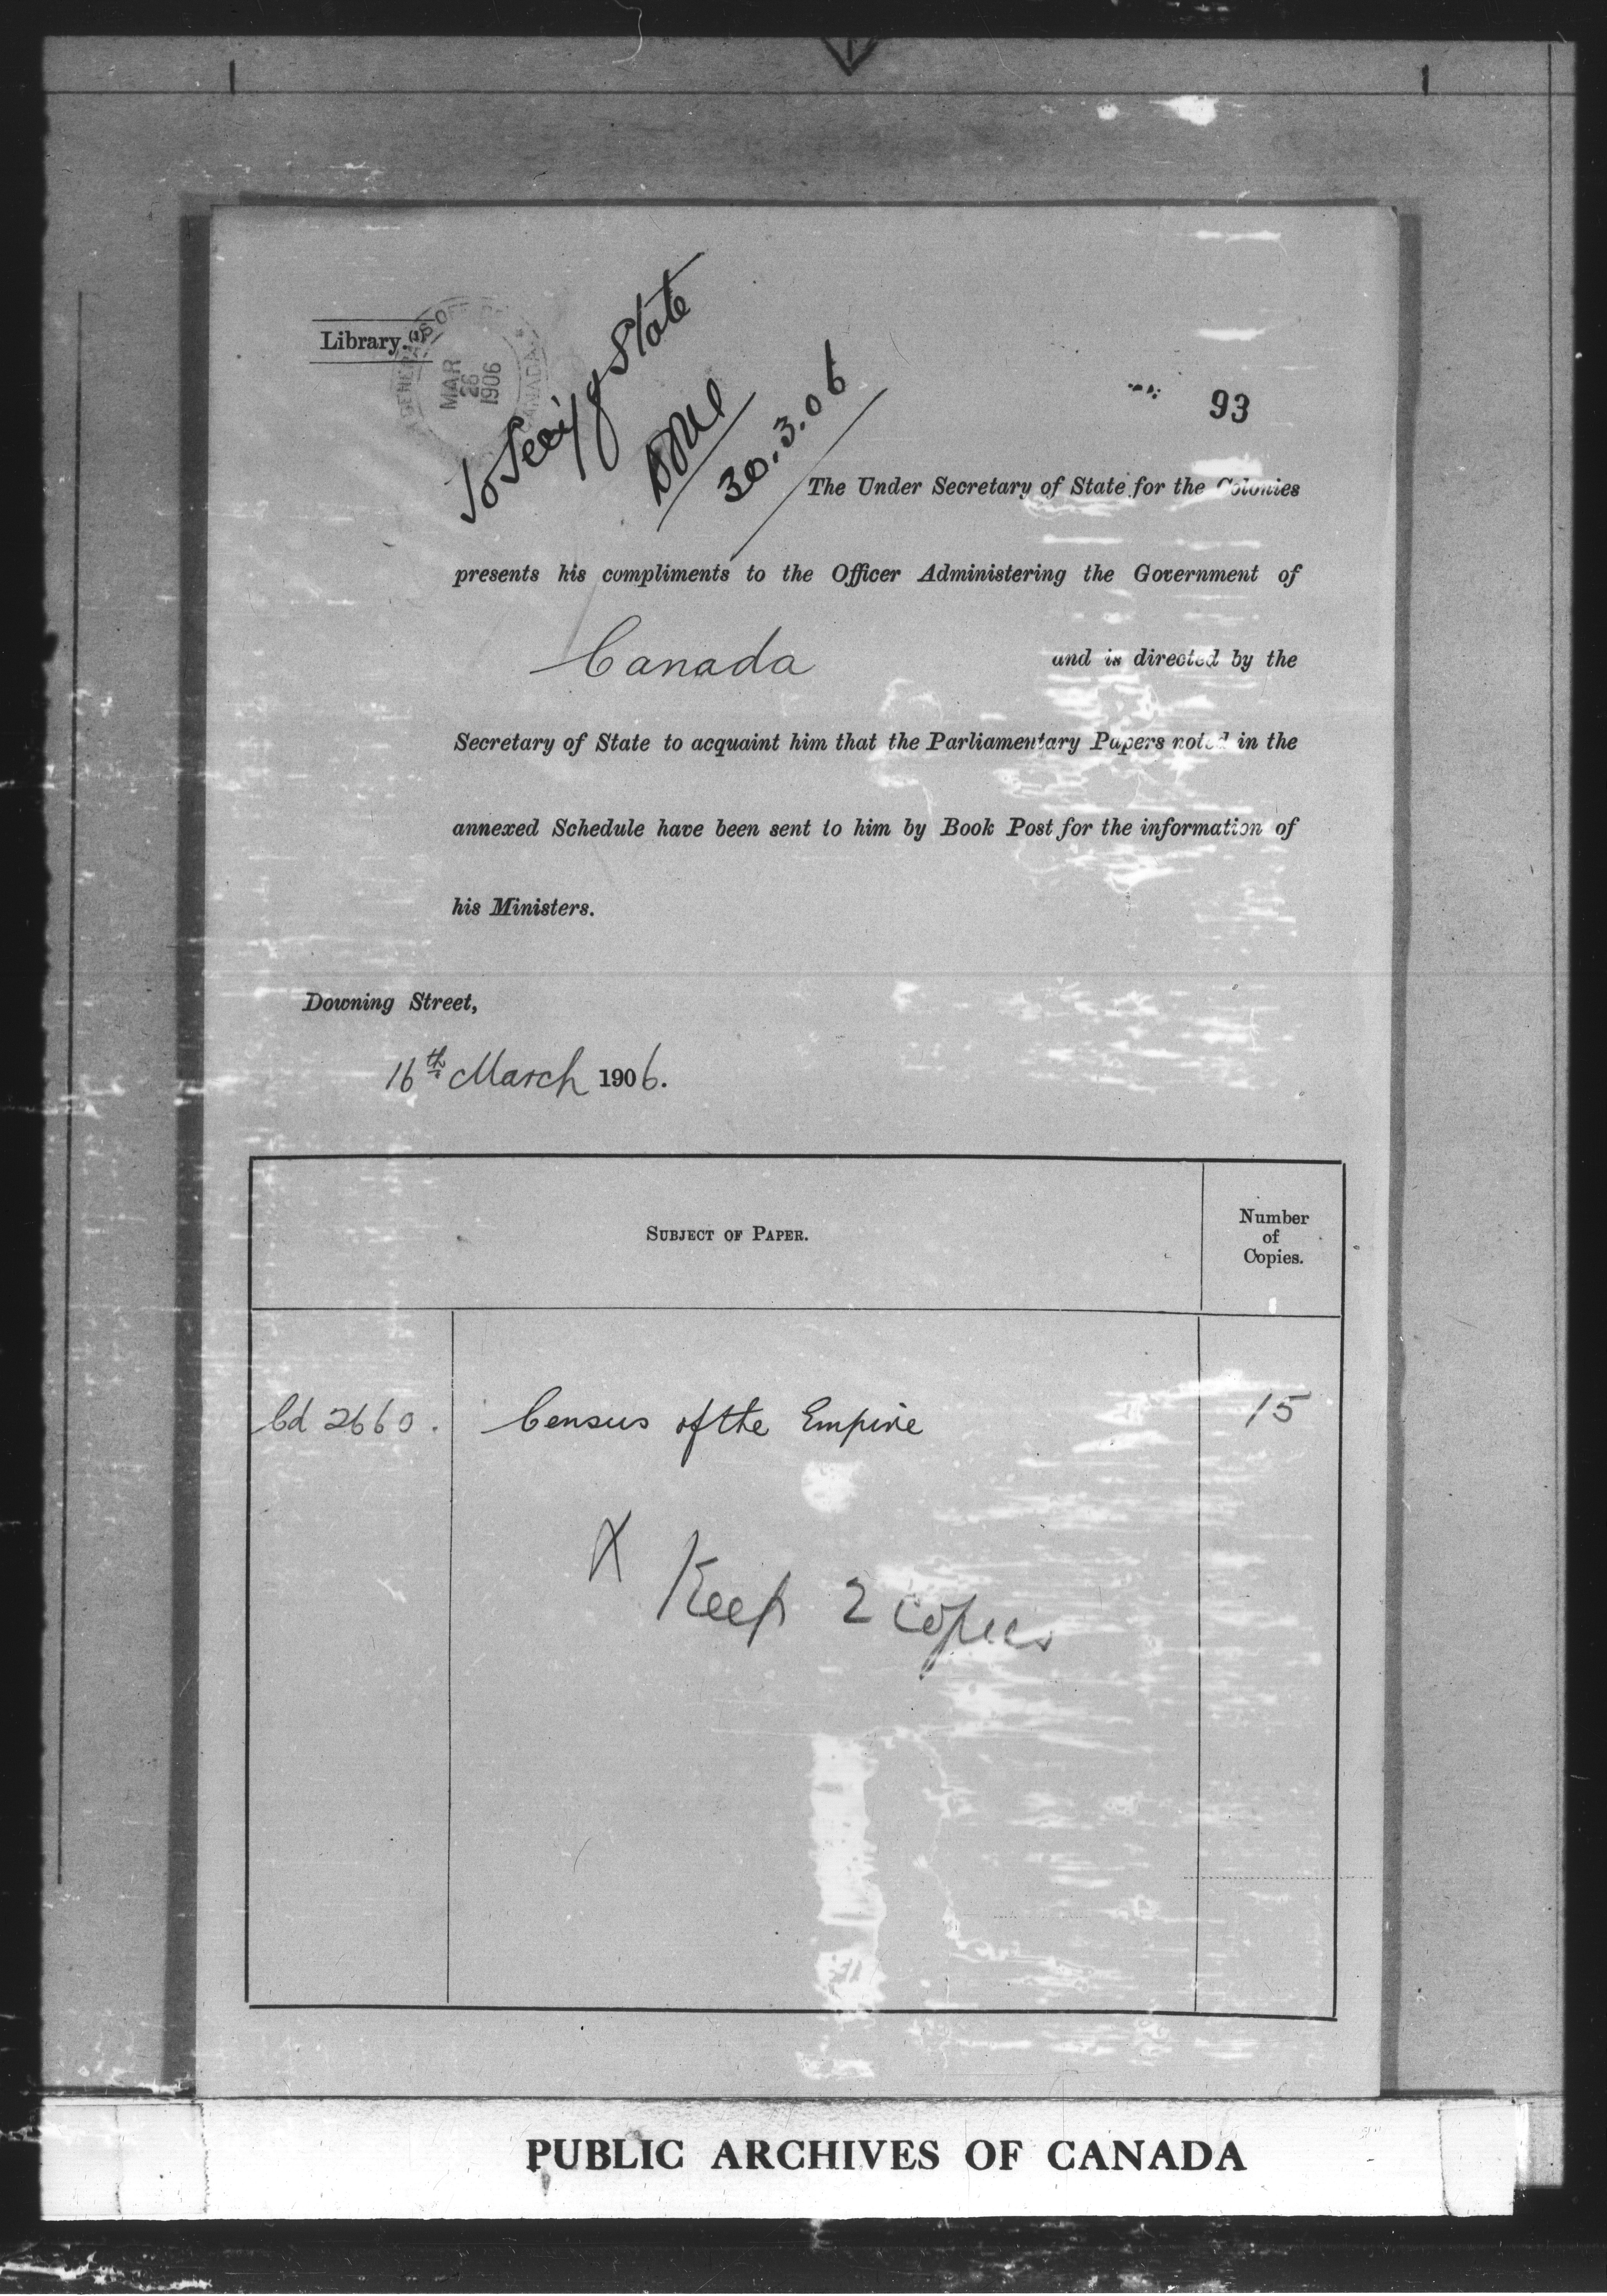 Library. (1)
GENERAL'S OFFICE
MAR
26
1906
CANADA
To Secy of State
30.3.06
93
The Under Secretary of State for the Colonies
presents his compliments to the Officer Administering the Government of
Canada and is directed by the
Secretary of State to acquaint him that the Parliamentary Papers noted in the
annexed Schedule have been sent to him by Book Post for the information of
his Ministers.
Downing Street,
16th March 1906.
SUBJECT OF PAPER.
Number
of
Copies.
Cd 2660. Census of the Empire 15
X Keep 2 copies
PUBLIC ARCHIVES OF CANADA